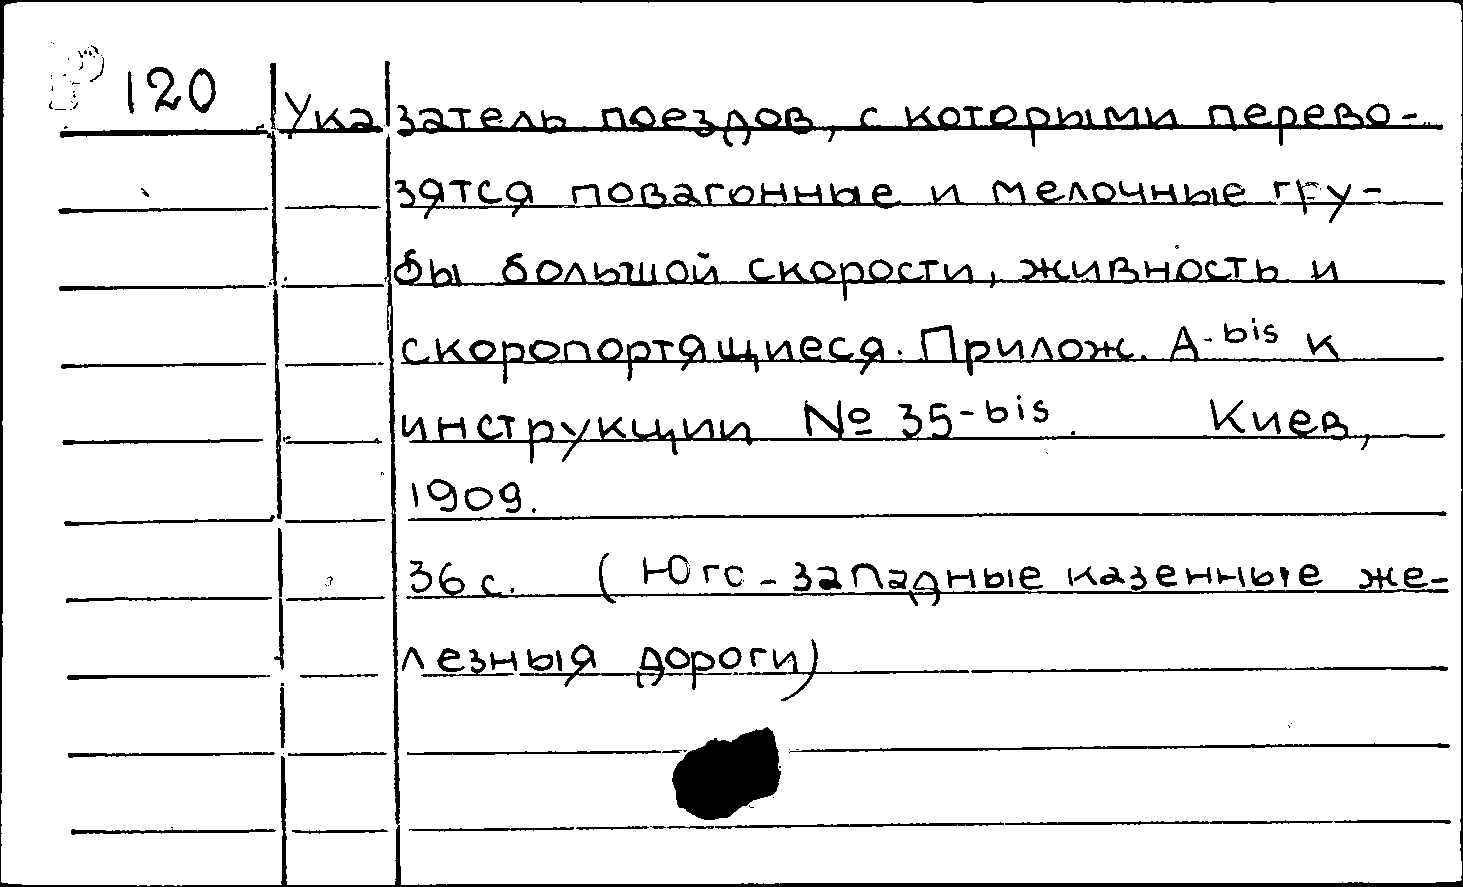 120 Указатель поездов, с которыми перево-
зятся повагонные и мелочные гру-
бы большой скорости, живность и
скоропортящиеся. Прилож. А-bis к
инструкции № 35-bis. Киев,
1909.
36 с. (Юго-западные казенные же-
лезныя дороги)